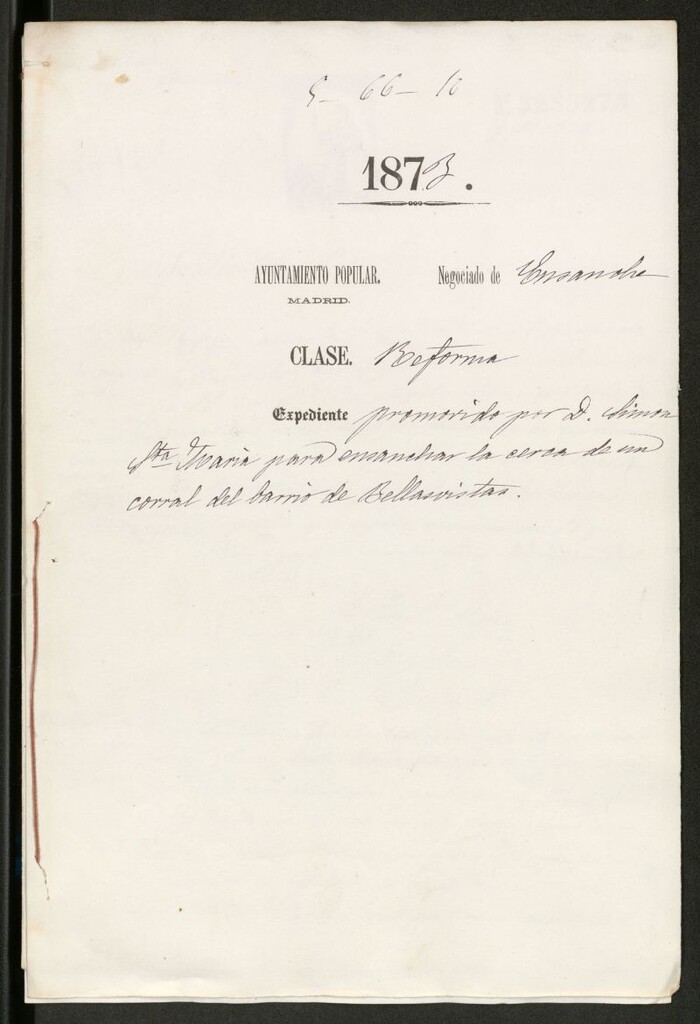 5 - 66 - 10
1873.
AYUNTAMIENTO POPULAR. Negociado de Ensanche
MADRID.
CLASE. Reforma
Expediente promovido por D. Simon
Sta. Maria para ensanchar la cerca de un
corral del barrio de Bellasvistas.